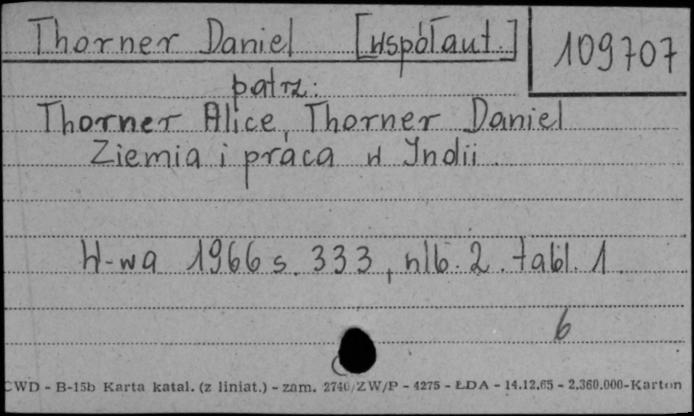 Thorner Daniel [współaut.]
109707
patrz:
Thorner Alice, Thorner Daniel
Ziemia i praca w Indii.
W-wa 1966 s. 333, nlb. 2. tabl. 1.
6
CWD - B-15b Karta katal. (z liniat.) - zam. 2740/ZW/P - 4275 - ŁDA - 14.12.65 - 2.360.000-Karton